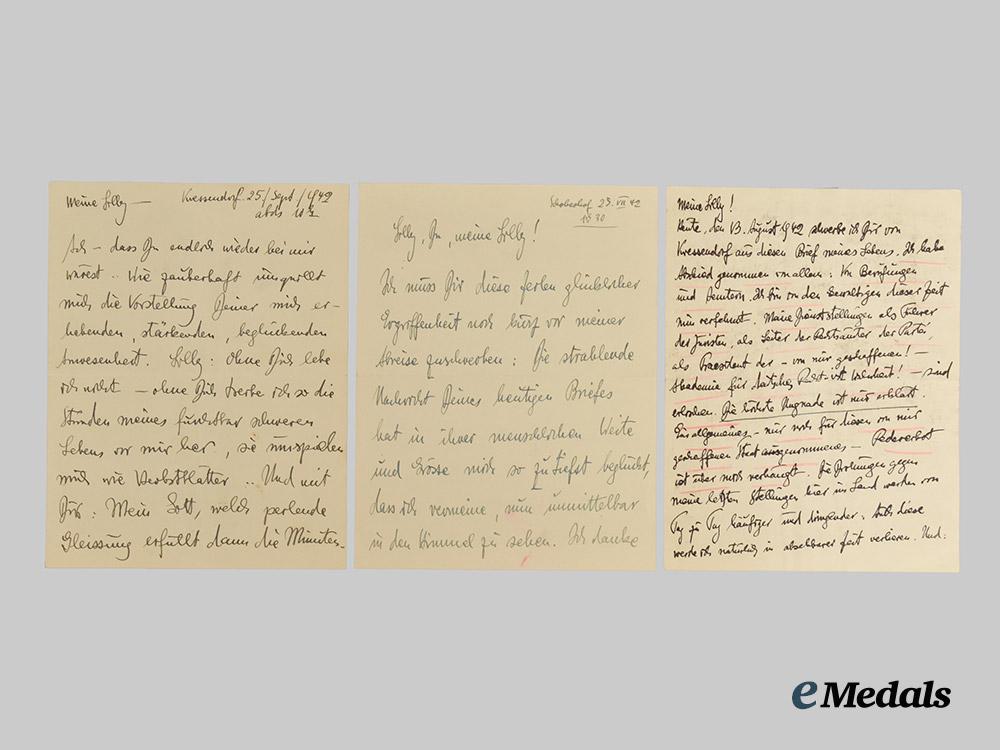 Meine Lilly — Kressendorf. 25/Sept/1942
abds 10½
Ach – dass Du endlich wieder bei mir
wärest .. Wie zauberhaft umquillt
mich die Vorstellung Deiner mich er-
hebenden, stärkenden, beglückenden
Anwesenheit. Lilly: ohne Dich lebe
ich nicht – ohne Dich sterbe ich so die
Stunden meines furchtbar schweren
Lebens vor mir her, sie umspielen
mich wie Herbstblätter .. Und mit
Dir: Mein Gott, welch perlende
Gleissung erfüllt dann die Minuten.
Schoberhof 23. VII 42
1930
Lilly, Du, meine Lilly!
Ich muss Dir diese Zeilen glücklicher
Ergriffenheit noch kurz vor meiner
Abreise zuschreiben: Die strahlende
Nachricht Deines heutigen Briefes
hat in ihrer menschlichen Weite
und Grösse mich so zu tiefst beglückt,
dass ich vermeine, nun unmittelbar
in den Himmel zu sehen. Ich danke
Meine Lilly!
Heute, den 13. August 1942 schreibe ich Dir von
Kressendorf aus diesen Brief meines Lebens. Ich habe
Abschied genommen von allem: Von Berufungen
und Aemtern. Ich bin von den Gewaltigen dieser Zeit
nun verfehmt. Meine Dienststellungen als Führer
der Juristen, als Leiter der Rechtsämter der Partei,
als Praesident der – von mir geschaffenen! –
Akademie für deutsches Recht ist Wahrheit! – sind
erloschen. Die höchste Ungnade ist mir erklärt.
Ein allgemeines – nur noch für diesen von mir
geschaffenen Staat ausgenommenes – Redeverbot
ist über mich verhängt. Die Drohungen gegen
meine letzten Stellungen hier im Land werden von
Tag zu Tag häufiger und dringender. Auch diese
werde ich natürlich in absehbarer Zeit verlieren. Und:
eMedals